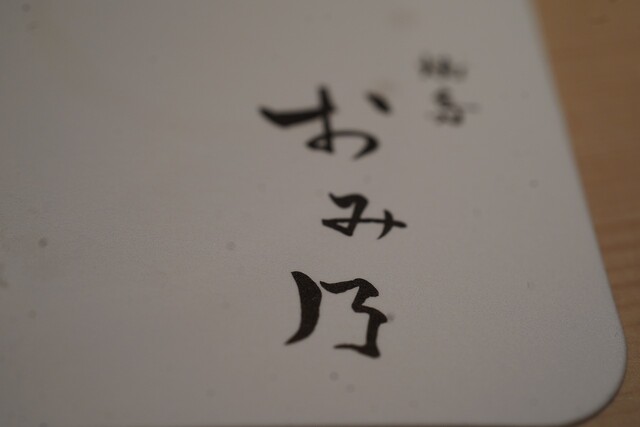 おみ乃